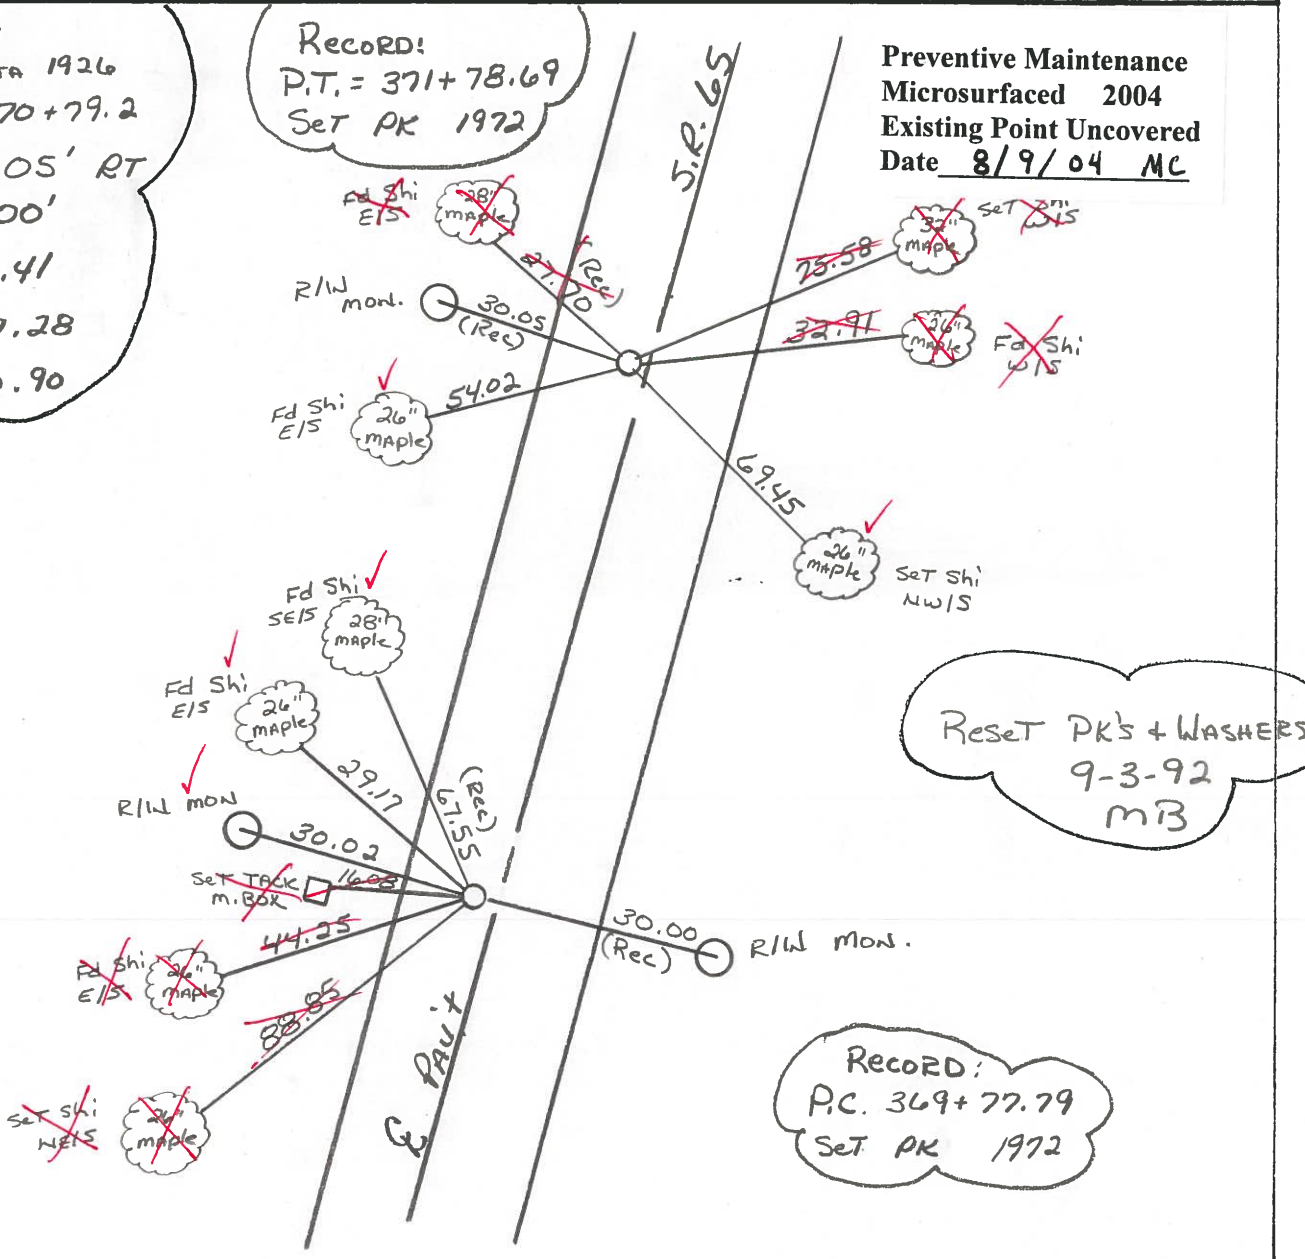 TA 1926
70+79.2
05' RT
00'
.41
.28
.90
RECORD:
P.T. = 371+78.69
SET PK 1972
S.R. 65
Preventive Maintenance
Microsurfaced 2004
Existing Point Uncovered
Date 8/9/04 MC
Fd Shi
E/S
28"
MAPle
27.70
(Rec)
R/W
MON.
30.05
(Rec)
Fd Shi
E/S
26"
MAPle
54.02
75.58
32"
MAPle
SET Shi
W/S
32.91
26"
MAPle
Fd Shi
W/S
69.45
26"
MAPle
SET Shi
NW/S
Fd Shi
SE/S
28"
MAPle
67.55
(Rec)
Fd Shi
E/S
26"
MAPle
29.17
R/W MON
30.02
SET TACK
M. BOX
16.08
44.25
Fd Shi
E/S
26"
MAPle
88.85
SET Shi
NE/S
26"
MAPle
30.00
(Rec)
R/W MON.
RESET PK's + WASHERS
9-3-92
MB
℄ PAV't
RECORD:
P.C. 369+77.79
SET PK 1972